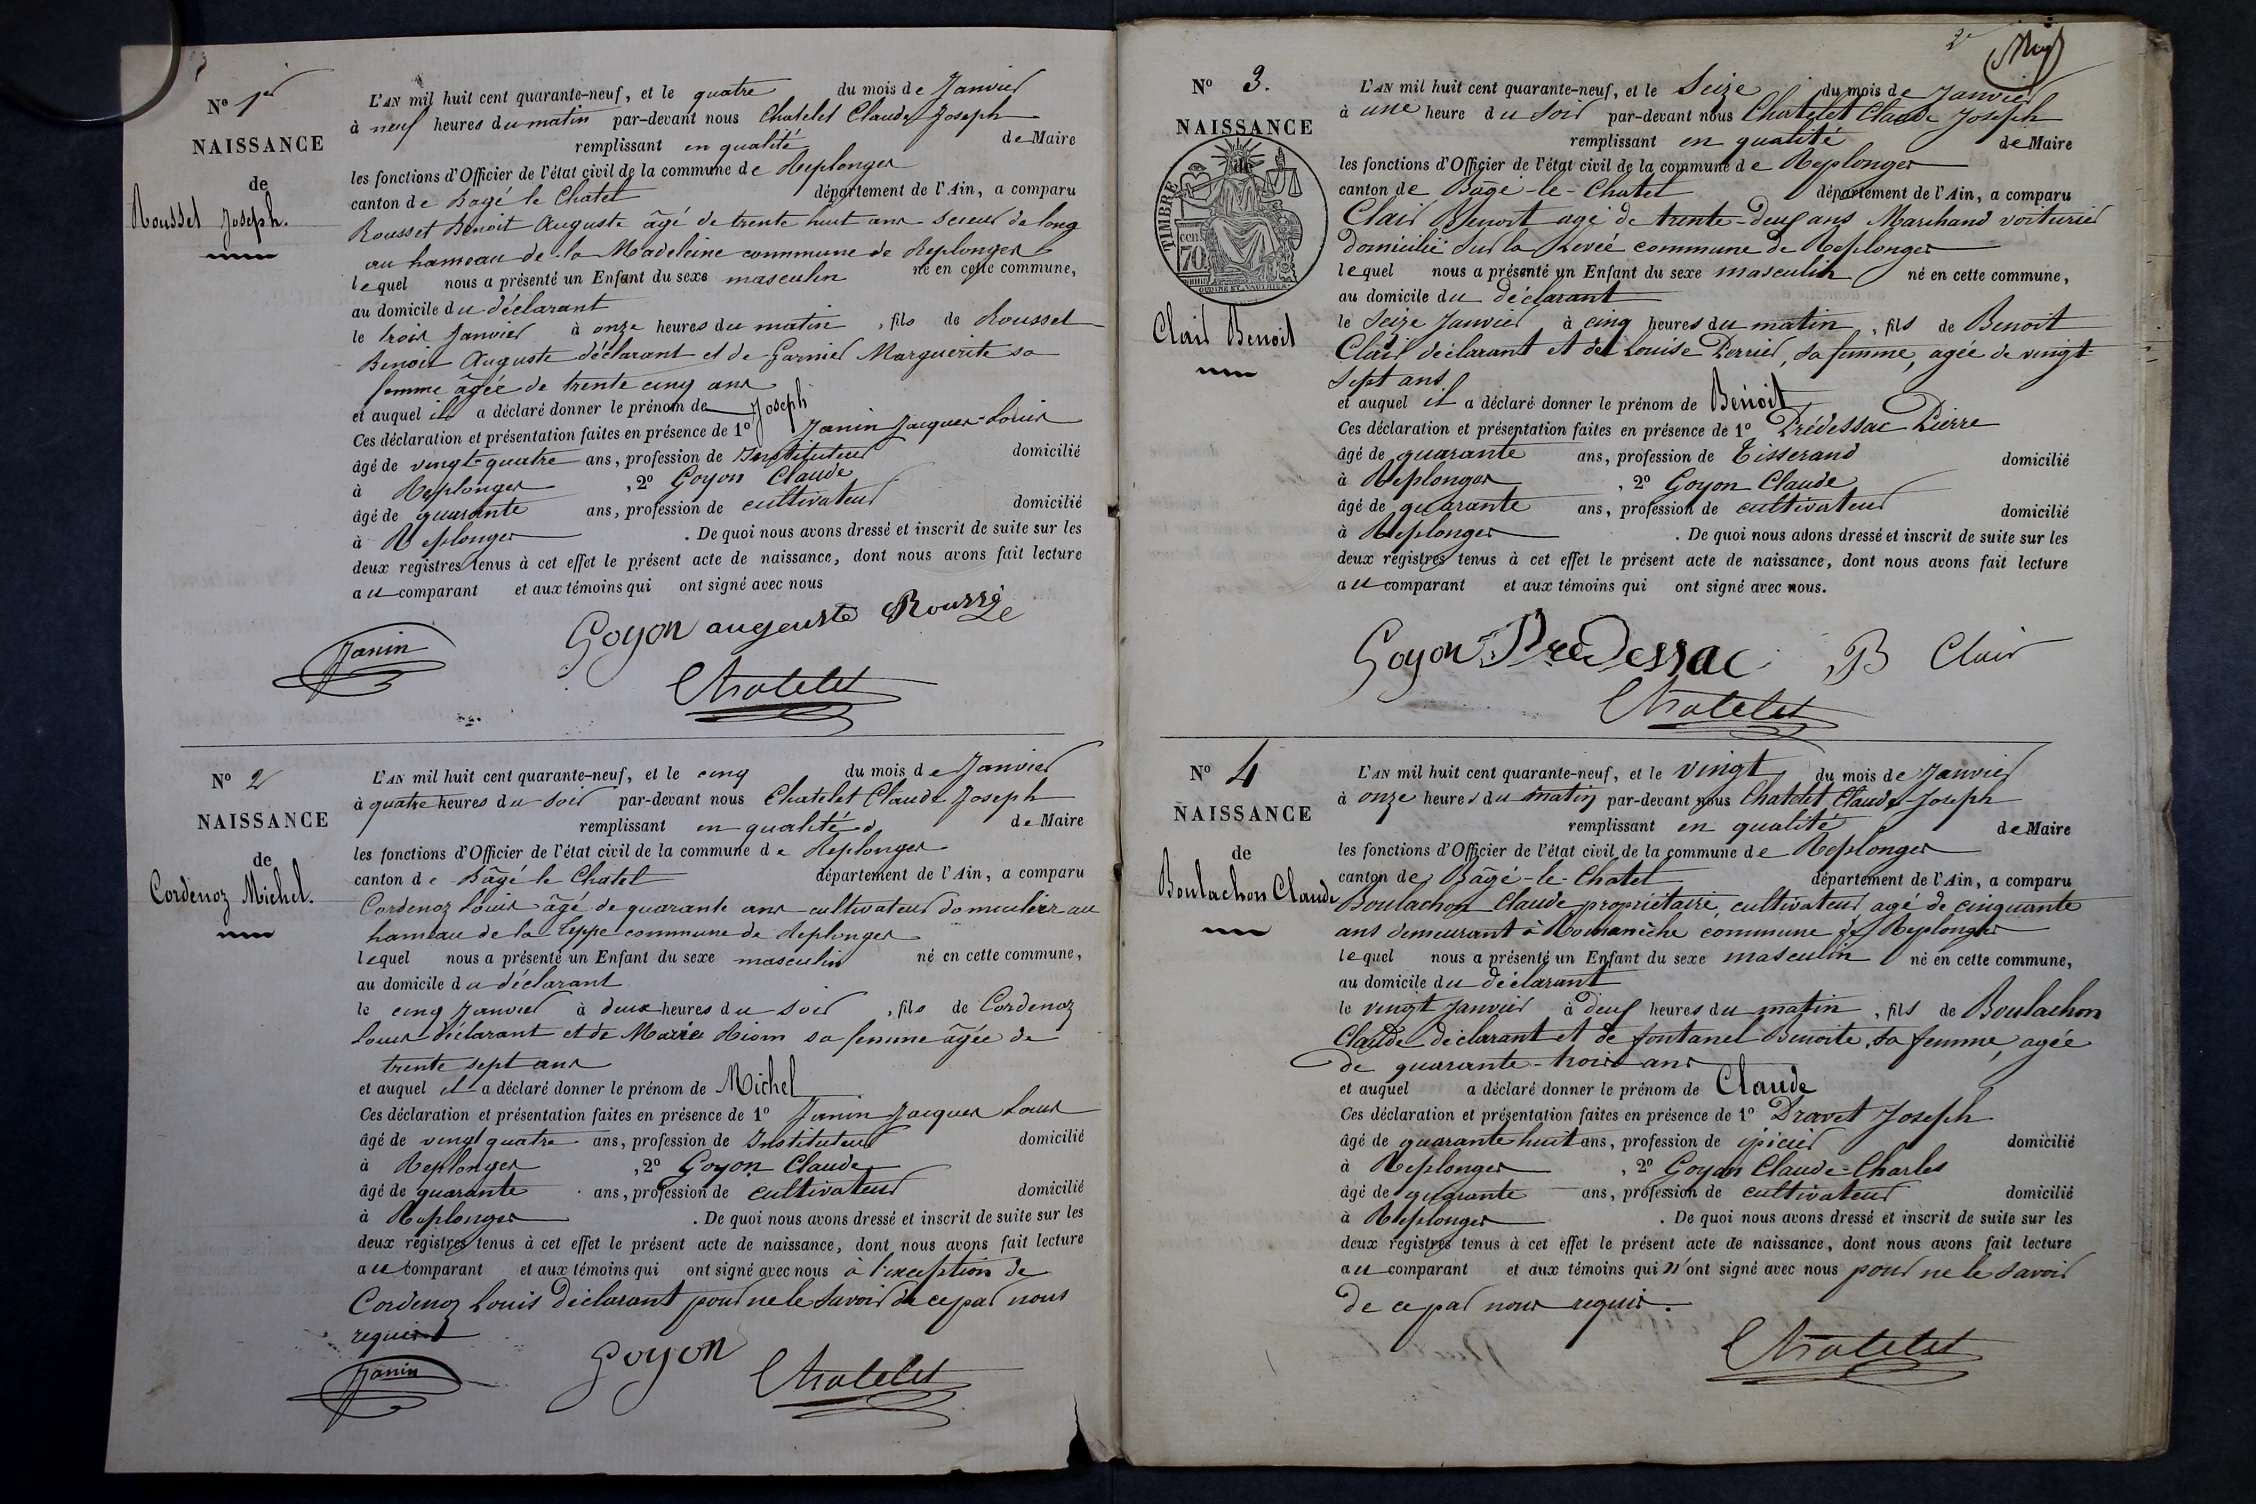 Nº 1er
NAISSANCE
de
Rousset Joseph.
L'AN mil huit cent quarante-neuf, et le quatre du mois de Janvier
à neuf heures du matin par-devant nous Chatelet Claude Joseph
remplissant en qualité de Maire
les fonctions d'Officier de l'état civil de la commune de Replonges
canton de Bagé le Chatel département de l'Ain, a comparu
Rousset Benoit Auguste âgé de trente huit ans scieur de long
au hameau de la Madeleine commune de Replonges
lequel nous a présenté un Enfant du sexe masculin né en cette commune,
au domicile du déclarant
le trois Janvier à onze heures du matin, fils de Rousset
Benoit Auguste déclarant et de Garnier Marguerite sa
femme âgée de trente cinq ans
et auquel il a déclaré donner le prénom de Joseph
Ces déclaration et présentation faites en présence de 1º Janin Jacques-Louis
âgé de vingt-quatre ans, profession de Instituteur domicilié
à Replonges, 2º Goyon Claude
âgé de quarante ans, profession de cultivateur domicilié
à Replonges. De quoi nous avons dressé et inscrit de suite sur les
deux registres tenus à cet effet le présent acte de naissance, dont nous avons fait lecture
au comparant et aux témoins qui ont signé avec nous
Goyon auguste Rousse
Janin
Chatelet
Nº 2
NAISSANCE
de
Cordenoz Michel.
L'AN mil huit cent quarante-neuf, et le cinq du mois de Janvier
à quatre heures du soir par-devant nous Chatelet Claude Joseph
remplissant en qualité de Maire
les fonctions d'Officier de l'état civil de la commune de Replonges
canton de Bâgé le Chatel département de l'Ain, a comparu
Cordenoz Louis âgé de quarante ans cultivateur au
hameau de la Teppe commune de Replonges
lequel nous a présenté un Enfant du sexe masculin né en cette commune,
au domicile du déclarant
le cinq Janvier à deux heures du soir, fils de Cordenoz
Louis déclarant et de Marie Riom sa femme âgée de
trente sept ans
et auquel il a déclaré donner le prénom de Michel
Ces déclaration et présentation faites en présence de 1º Janin Jacques Louis
âgé de vingt quatre ans, profession de Instituteur domicilié
à Replonges, 2º Goyon Claude
âgé de quarante ans, profession de cultivateur domicilié
à Replonges. De quoi nous avons dressé et inscrit de suite sur les
deux registres tenus à cet effet le présent acte de naissance, dont nous avons fait lecture
au comparant et aux témoins qui ont signé avec nous à l'exception de
Cordenoz Louis déclarant pour ne le savoir de ce par nous
requis
Janin
Goyon
Chatelet
2
Nº 3.
NAISSANCE
de
TIMBRE
cen.
70
Clair Benoit
L'AN mil huit cent quarante-neuf, et le Seize du mois de Janvier
à une heure du soir par-devant nous Chatelet Claude Joseph
remplissant en qualité de Maire
les fonctions d'Officier de l'état civil de la commune de Replonges
canton de Bâgé-le-Chatel département de l'Ain, a comparu
Clair Benoit agé de trente-deux ans Marchand voiturier
domicilié sur la Levée commune de Replonges
lequel nous a présenté un Enfant du sexe masculin né en cette commune,
au domicile du déclarant
le Seize Janvier à cinq heures du matin, fils de Benoit
Clair déclarant et de Louise Perrier, sa femme, agée de vingt-
sept ans
et auquel il a déclaré donner le prénom de Benoit
Ces déclaration et présentation faites en présence de 1º Prédessac Pierre
âgé de quarante ans, profession de Tisserand domicilié
à Replonges, 2º Goyon Claude
âgé de quarante ans, profession de cultivateur domicilié
à Replonges. De quoi nous avons dressé et inscrit de suite sur les
deux registres tenus à cet effet le présent acte de naissance, dont nous avons fait lecture
au comparant et aux témoins qui ont signé avec nous.
Goyon Predessac B Clair
Chatelet
Nº 4
NAISSANCE
de
Boulachon Claude
L'AN mil huit cent quarante-neuf, et le vingt du mois de Janvier
à onze heures du matin par-devant nous Chatelet Claude-Joseph
remplissant en qualité de Maire
les fonctions d'Officier de l'état civil de la commune de Replonges
canton de Bâgé-le-Chatel département de l'Ain, a comparu
Boulachon Claude propriétaire, cultivateur agé de cinquante
ans demeurant à Romanèche commune de Replonges
lequel nous a présenté un Enfant du sexe masculin né en cette commune,
au domicile du déclarant
le vingt Janvier à deux heures du matin, fils de Boulachon
Claude déclarant et de fontanel Benoite, sa femme, agée
de quarante-trois ans
et auquel a déclaré donner le prénom de Claude
Ces déclaration et présentation faites en présence de 1º Dravet Joseph
âgé de quarante huit ans, profession de épicier domicilié
à Replonges, 2º Goyon Claude-Charles
âgé de quarante ans, profession de cultivateur domicilié
à Replonges. De quoi nous avons dressé et inscrit de suite sur les
deux registres tenus à cet effet le présent acte de naissance, dont nous avons fait lecture
au comparant et aux témoins qui n'ont signé avec nous pour ne le savoir
de ce par nous requis.
Chatelet